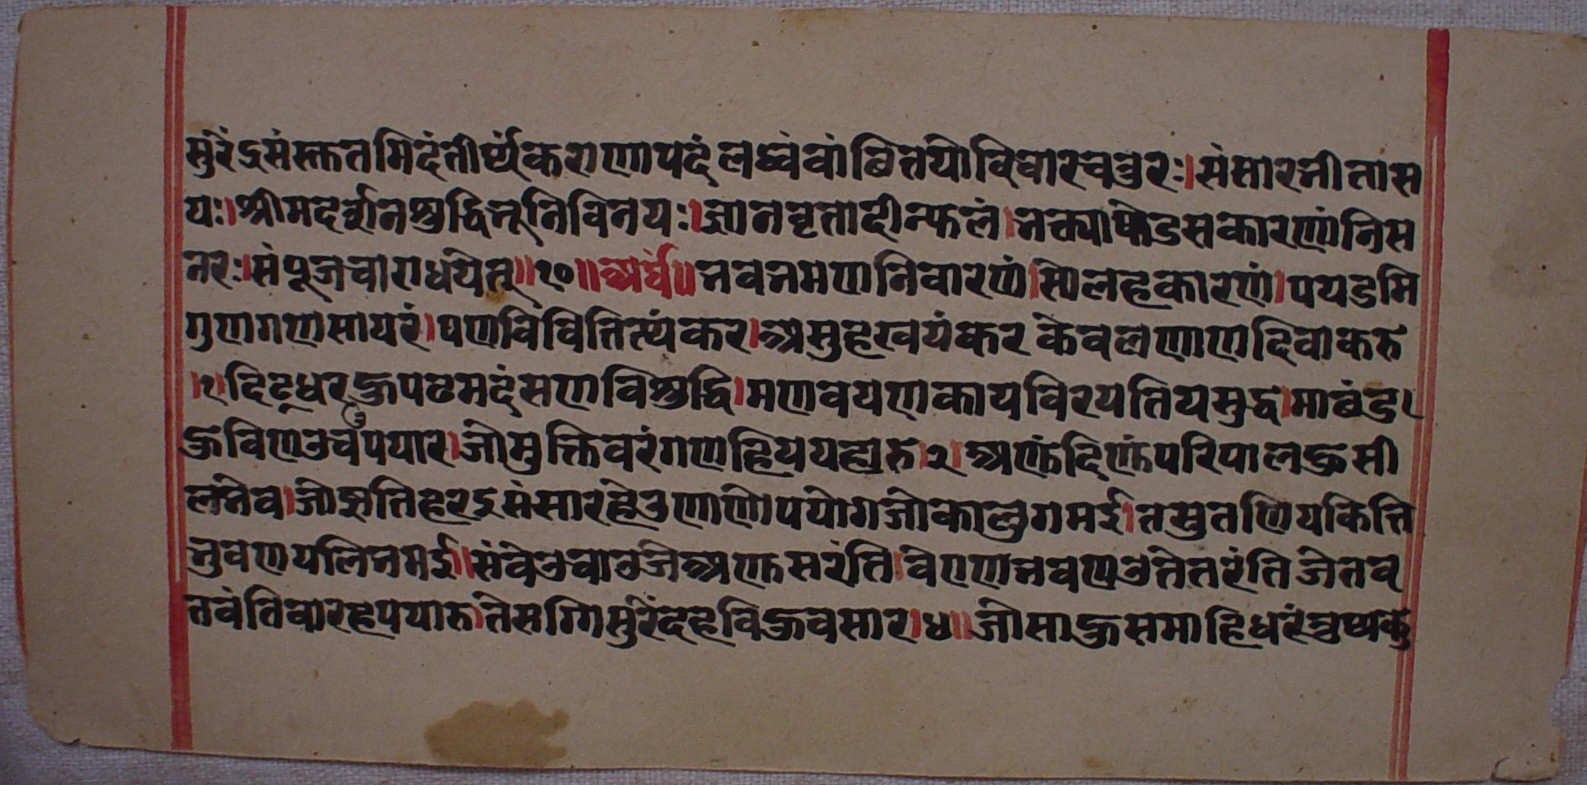 सुरेंद्रसंस्कृतमिदंतीर्थंकराणापदं लब्ध्वंवांछितयोविघारचतुरः।संसारभीतास
यः।श्रीमदर्शनशुद्धिनूनिविनयः।ज्ञानवृतादीन्फलं।भक्त्याषोडसकारणंनिस
नरः।संपूजवाराधयेत्॥१०॥अर्घं॥भवभमणनिवारणं।सोलहकारणं।पयडमि
गुणगणसायरं।पणविवितित्थंकर।असुहखयंकर केवलणाणदिवाकरु
।१।दिढधरहुपढमदंसणविशुद्धि।मणवयणकायविरयतियसुद्ध।माछंडा
हुविणउचउपयार।जोमुक्तिवरंगणहिययहारु।२।अणुदिणुपरिपालहुसी
लभेव।जोझत्तिहरइसंसारहेउणाणोपयोगजोकालुगमई।तसुतणियकित्ति
भुवणयलिभमई।संवेउवाउजेअणुसरंति।वेएणभवण्णउतेतरंतिजेतव
तवंतिवारहपयारु।तेसग्गिसुरेंदहविहुवसार।४॥जोसाहुसमाहिधरंवुथक्कु